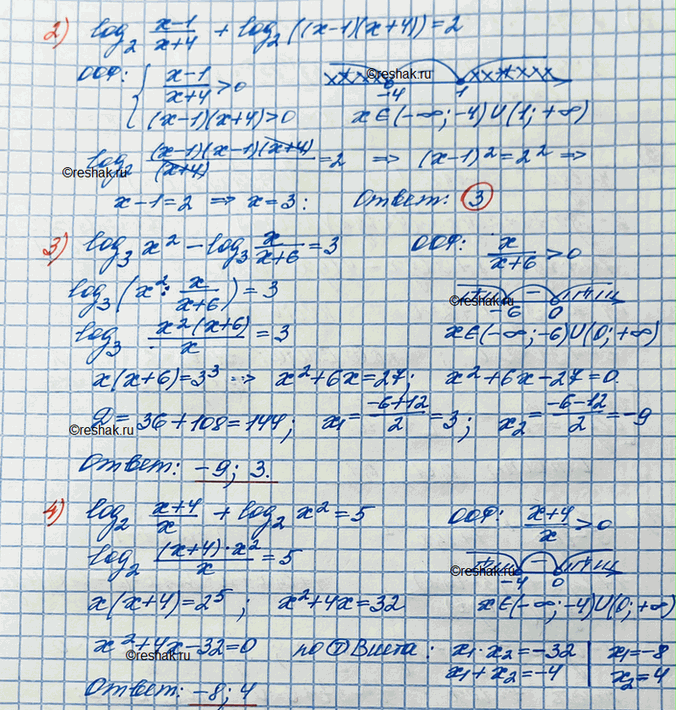 2) log₂ (x-1)/(x+4) + log₂((x-1)(x+4)) = 2
ООФ: { (x-1)/(x+4) > 0
©reshak.ru
-4 1
(x-1)(x+4) > 0 x∈(-∞; -4)∪(1; +∞)
log₂ (x-1)(x-1)(x+4)/(x+4) = 2 ⇒ (x-1)² = 2² ⇒
©reshak.ru
x-1=2 ⇒ x=3: Ответ: 3
3) log₃ x² - log₃ x/(x+6) = 3 ООФ: x/(x+6) > 0
log₃ (x² : x/(x+6)) = 3
©reshak.ru
+ - +
-6 0
log₃ x²(x+6)/x = 3 x∈(-∞; -6)∪(0; +∞)
x(x+6) = 3³ ⇒ x²+6x=27; x²+6x-27=0.
D = 36+108=144; x₁ = (-6+12)/2 = 3; x₂ = (-6-12)/2 = -9
©reshak.ru
Ответ: -9; 3.
4) log₂ (x+4)/x + log₂ x² = 5 ООФ: (x+4)/x > 0
log₂ (x+4)·x²/x = 5
©reshak.ru
+ - +
-4 0
x(x+4) = 2⁵; x²+4x=32 x∈(-∞; -4)∪(0; +∞)
x²+4x-32=0 по Т Виета: x₁·x₂=-32 | x₁=-8
©reshak.ru
x₁+x₂=-4 | x₂=4
Ответ: -8; 4